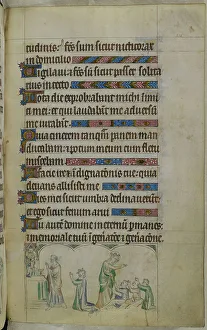 tudinis: fc̄s sum sicut nicticorax
in domicilio
Vigilaui: ⁊ fc̄s sū sicut passer solita
rius in tecto
Tota die exprobrabant michi inimi
ci mei: et qui laudabāt me aduersū
me iurabāt
Quia cinerem tanq̄m panem man
ducabam: ⁊ potum meum cum fletu
miscebam
A facie ire ⁊ indignacōnis tue: quia
eleuans allisisti me
Dies mei sicut umbra declinauerūt:
et ego sicut fenum arui
Tu autē domine in eternū ꝑmanes:
⁊ memoriale tuū in gen̄acōe ⁊ gen̄acōnē.